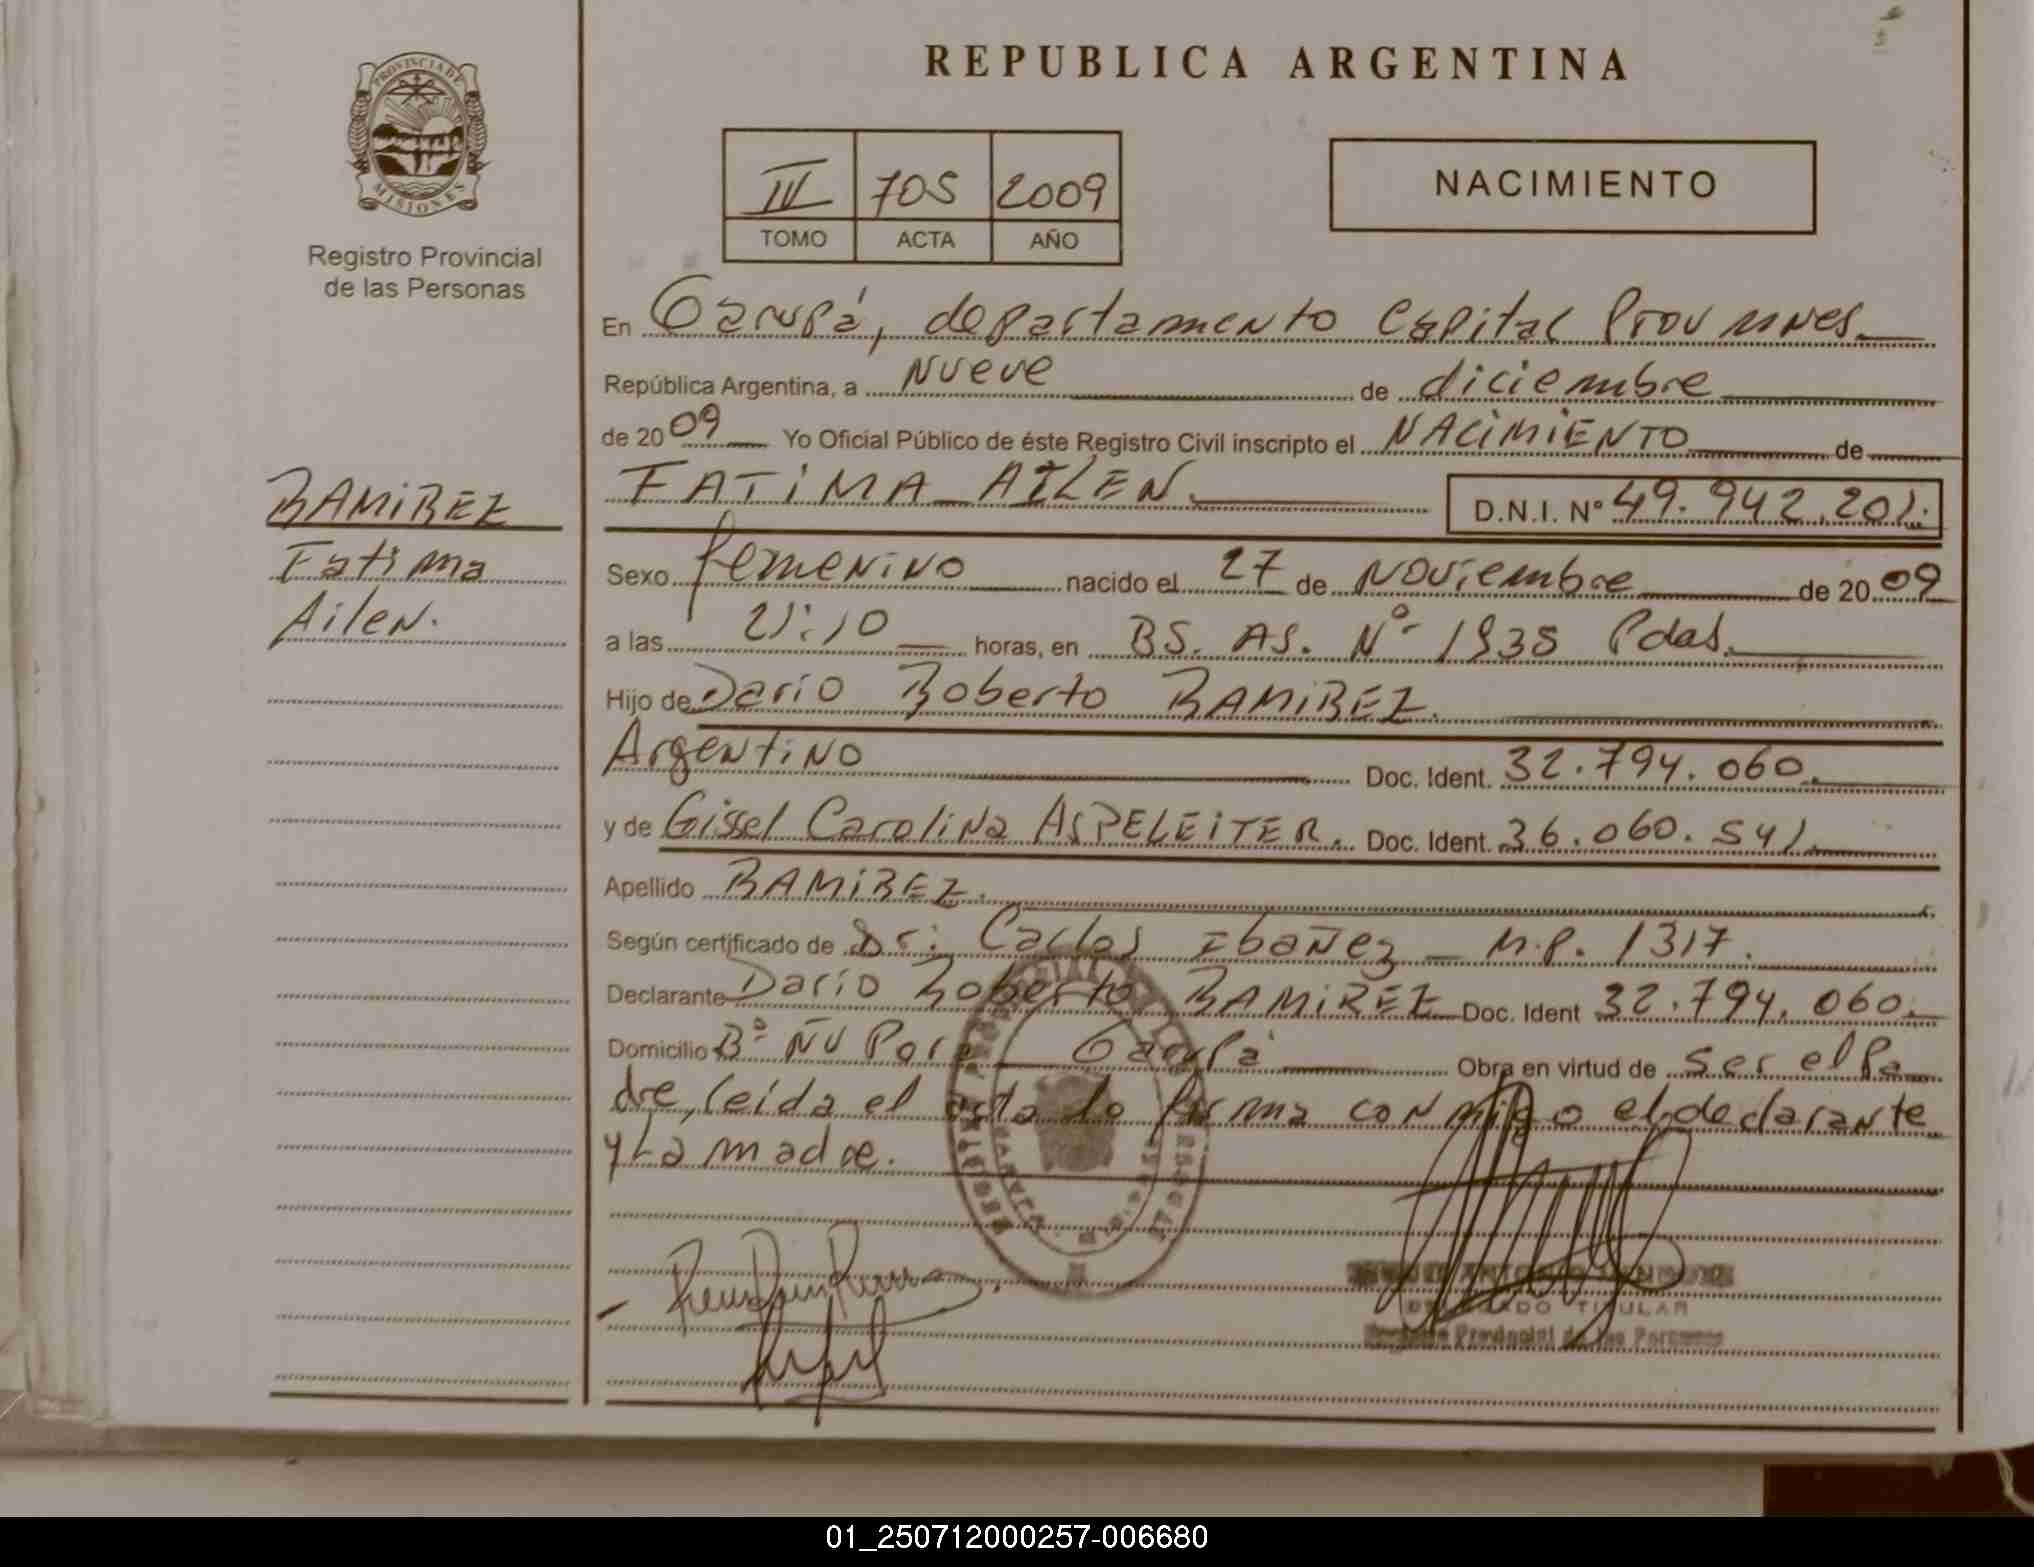 REPUBLICA ARGENTINA
PROVINCIA DE
MISIONES
Registro Provincial
de las Personas
IV 705 2009
TOMO ACTA AÑO
NACIMIENTO
En Garupá, departamento Capital Prov mnes.
República Argentina, a nueve de diciembre
de 2009 Yo Oficial Público de éste Registro Civil inscripto el NACIMIENTO de
FATIMA AILEN. D.N.I. Nº 49.942.201.
RAMIREZ
Fatima
Ailen.
Sexo femenino nacido el 27 de Noviembre de 2009
a las 21:10 horas, en BS. AS. Nº 1938 Pdas.
Hijo de Darío Roberto RAMIREZ.
Argentino Doc. Ident. 32.794.060.
y de Gissel Carolina ASPELEITER. Doc. Ident. 36.060.541.
Apellido RAMIREZ.
Según certificado de Dr: Carlos Ibañez - M.P. 1317.
Declarante Darío Roberto RAMIREZ Doc. Ident 32.794.060.
Domicilio Bº Ñu Pora Garupá Obra en virtud de ser el Pa
dre, leída el acta la firma conmigo el declarante
y La madre.
DELEGADO TITULAR
Registro Provincial de las Personas
01_250712000257-006680